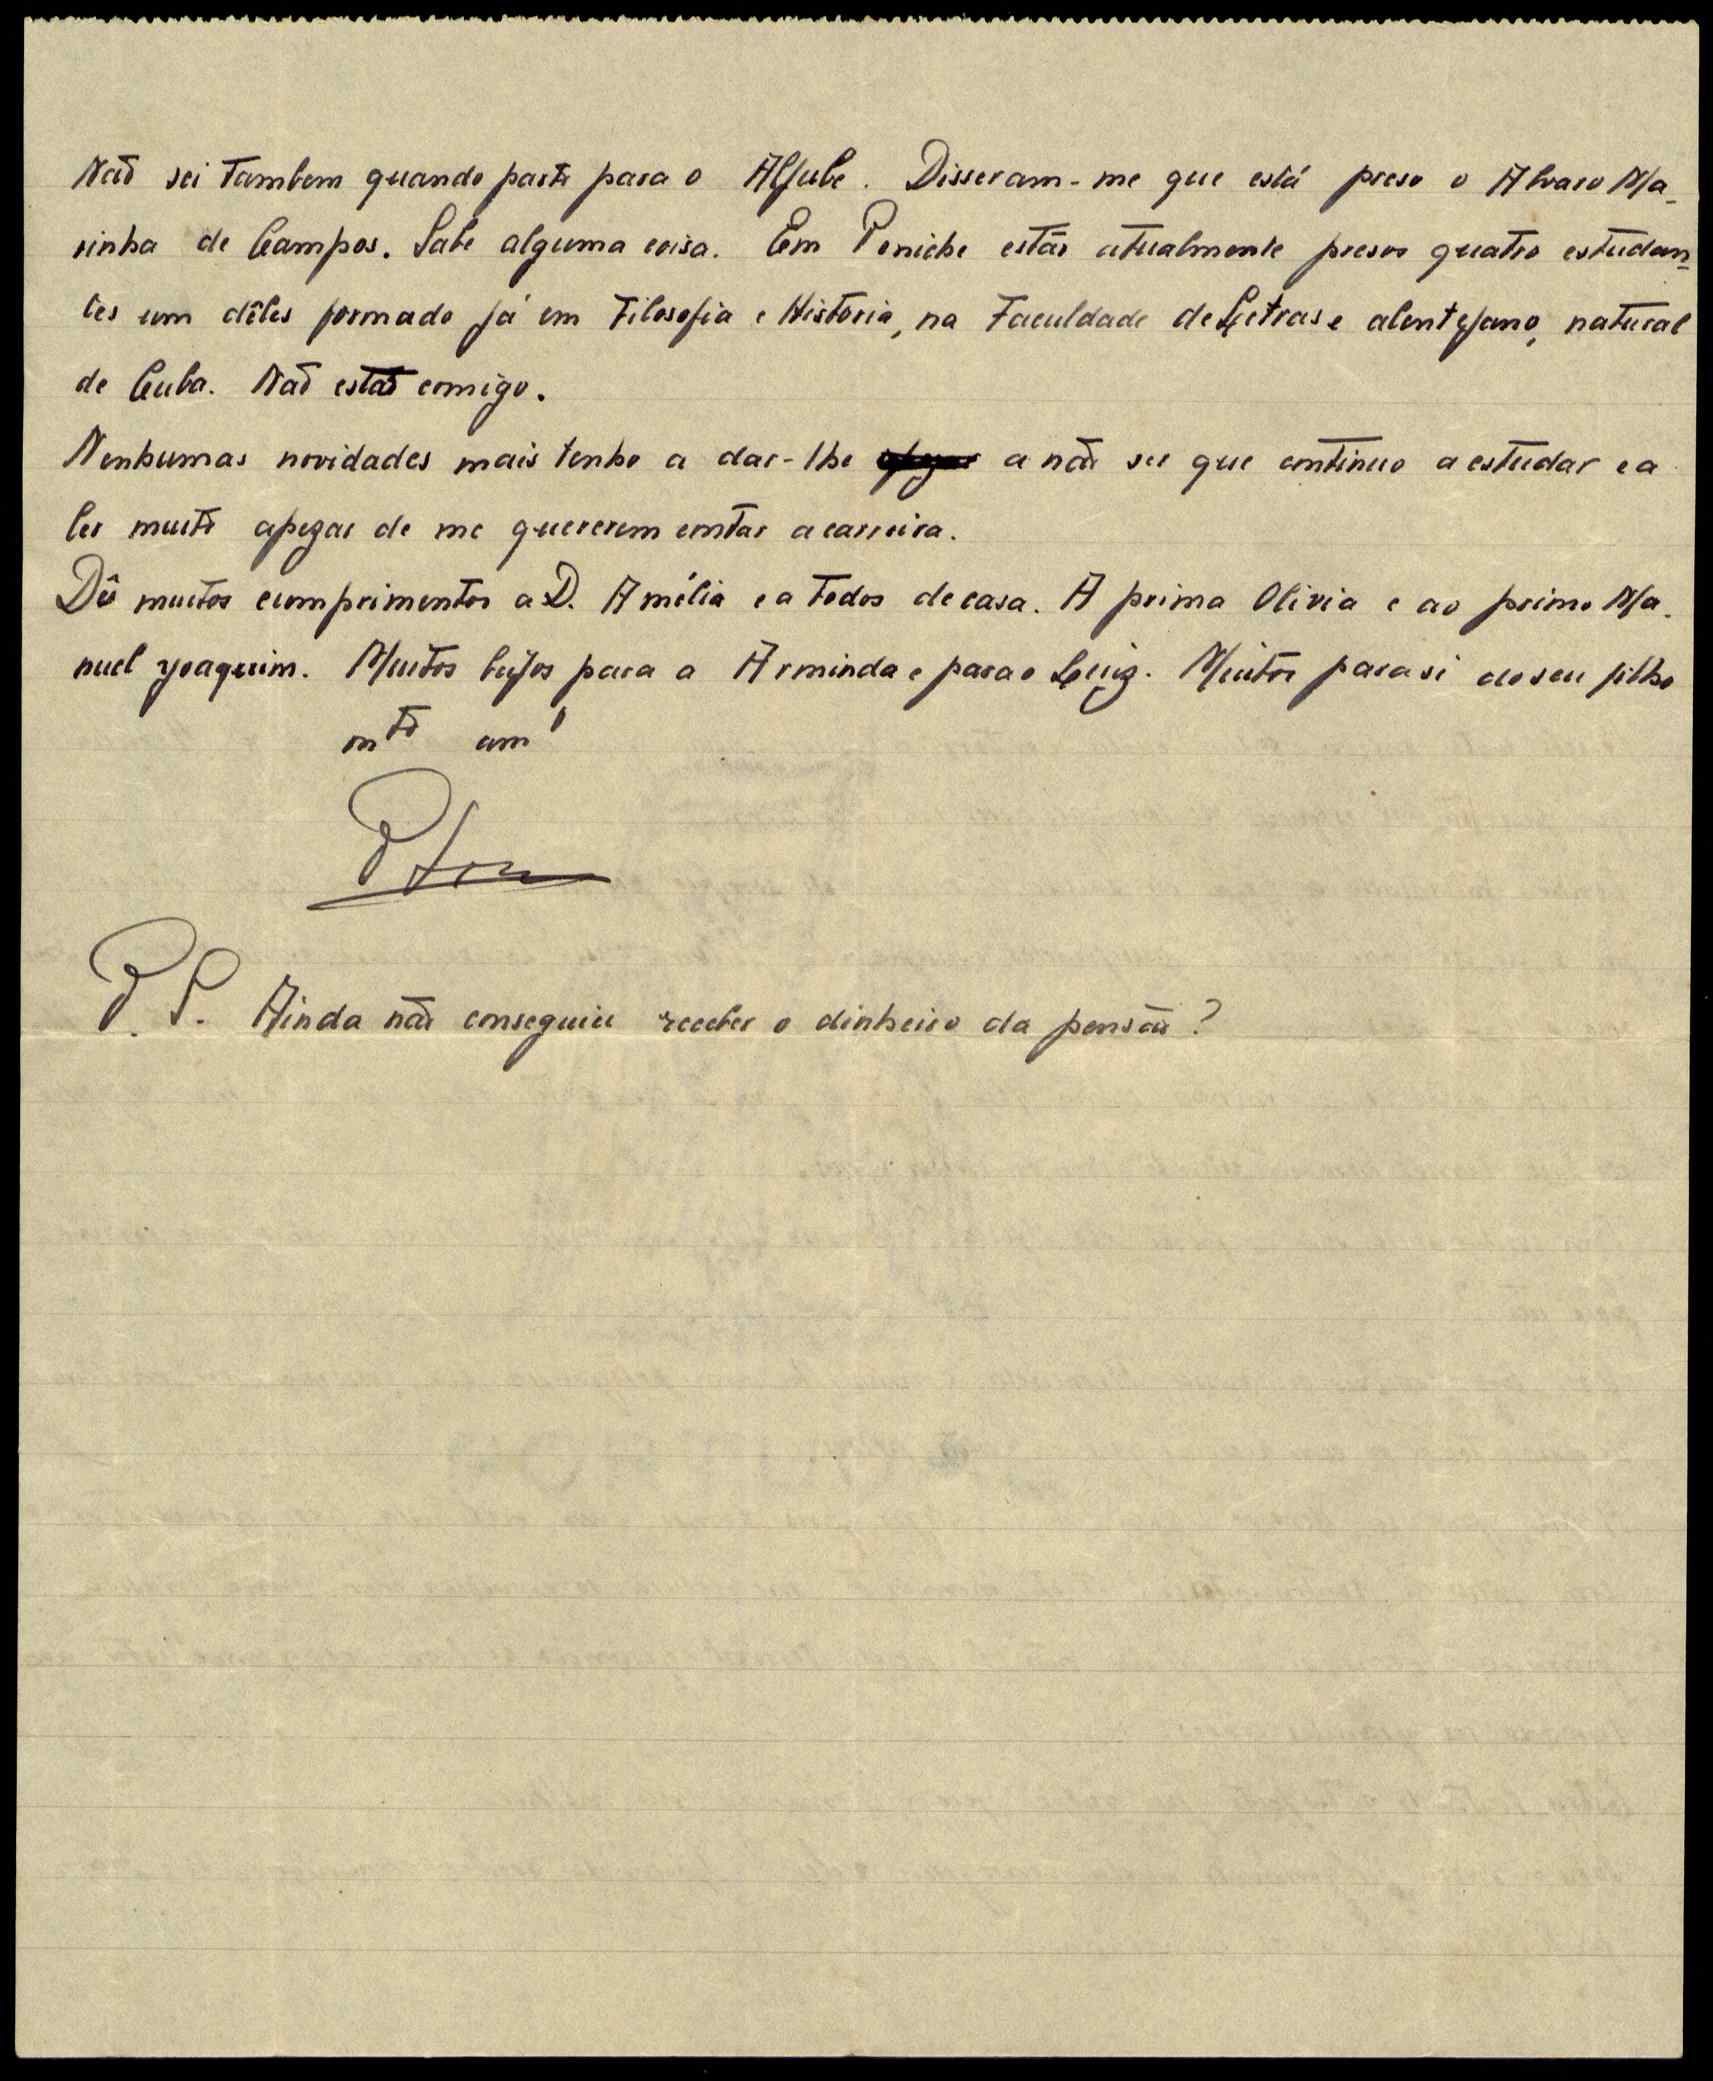 Não sei tambem quando parto para o Aljube. Disseram-me que está preso o Alvaro Ma-
rinha de Campos. Sabe alguma coisa. Em Peniche estão atualmente presos quatro estudan-
tes um dêles formado já em Filosofia e Historia, na Faculdade de Letras e alentejano, natural
de Cuba. Não estão comigo.
Nenhumas novidades mais tenho a dar-lhe a não ser que continuo a estudar e a
ler muito apezar de me quererem cortar a carreira.
Dê muitos cumprimentos a D. Amélia e a todos de casa. A prima Olivia e ao primo Ma-
nuel Joaquim. Muitos beijos para a Arminda e para o Luiz. Muitos para si do seu filho
mto amº
P. S. Ainda não conseguiu receber o dinheiro da pensão?